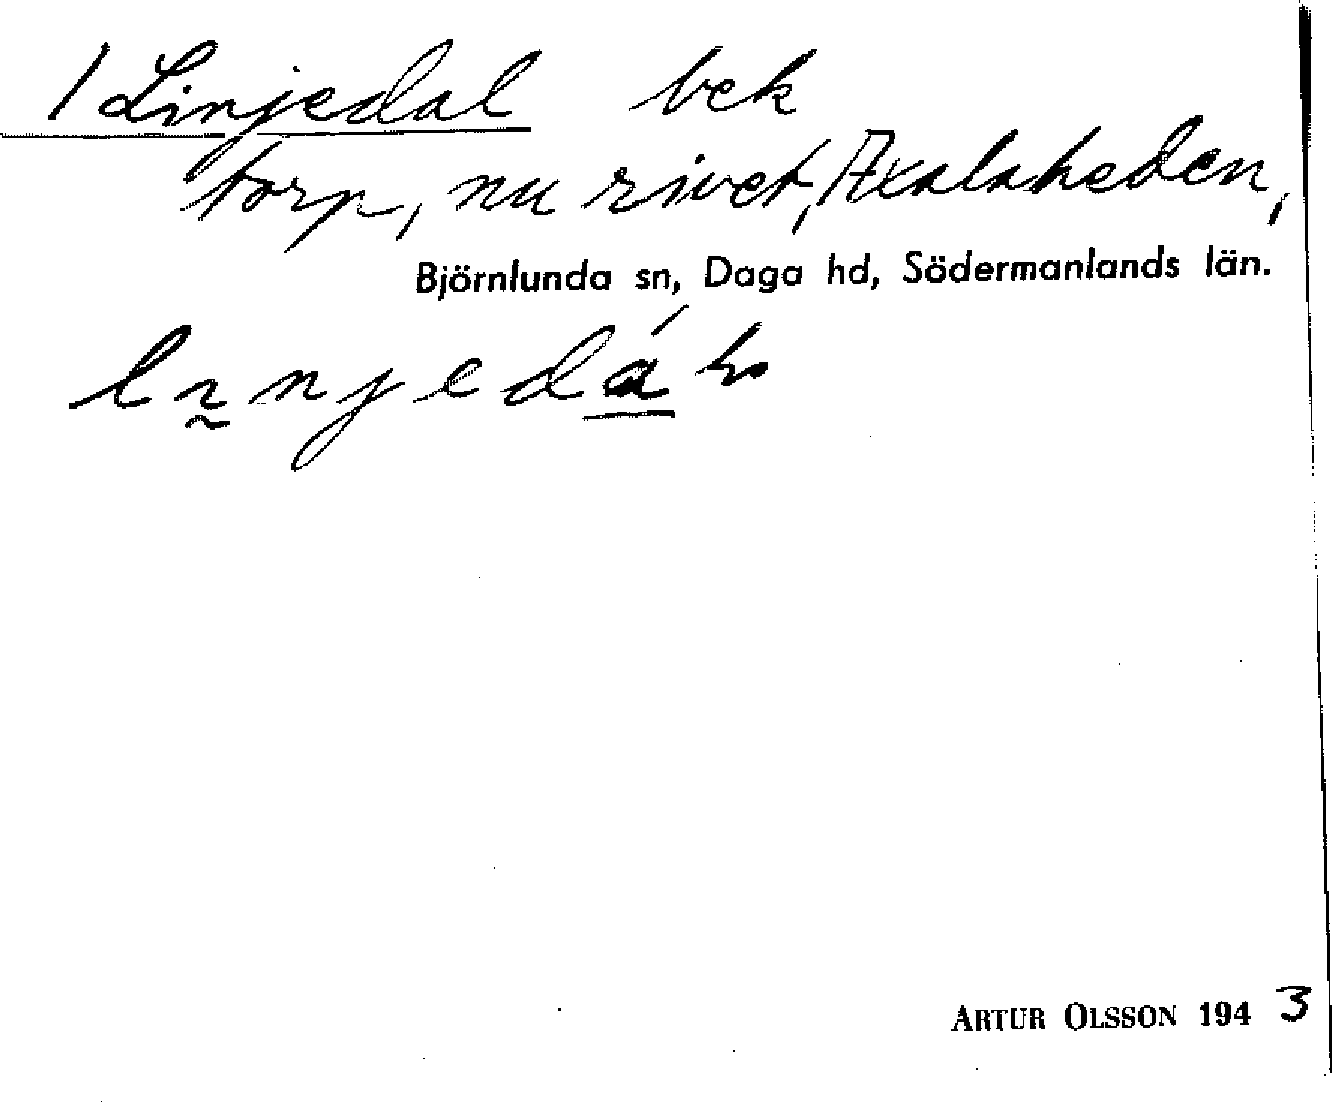 / Linjedal bek
torp, nu rivet, Axalaheden,
Björnlunda sn, Daga hd, Södermanlands län.
ARTUR OLSSON 1943